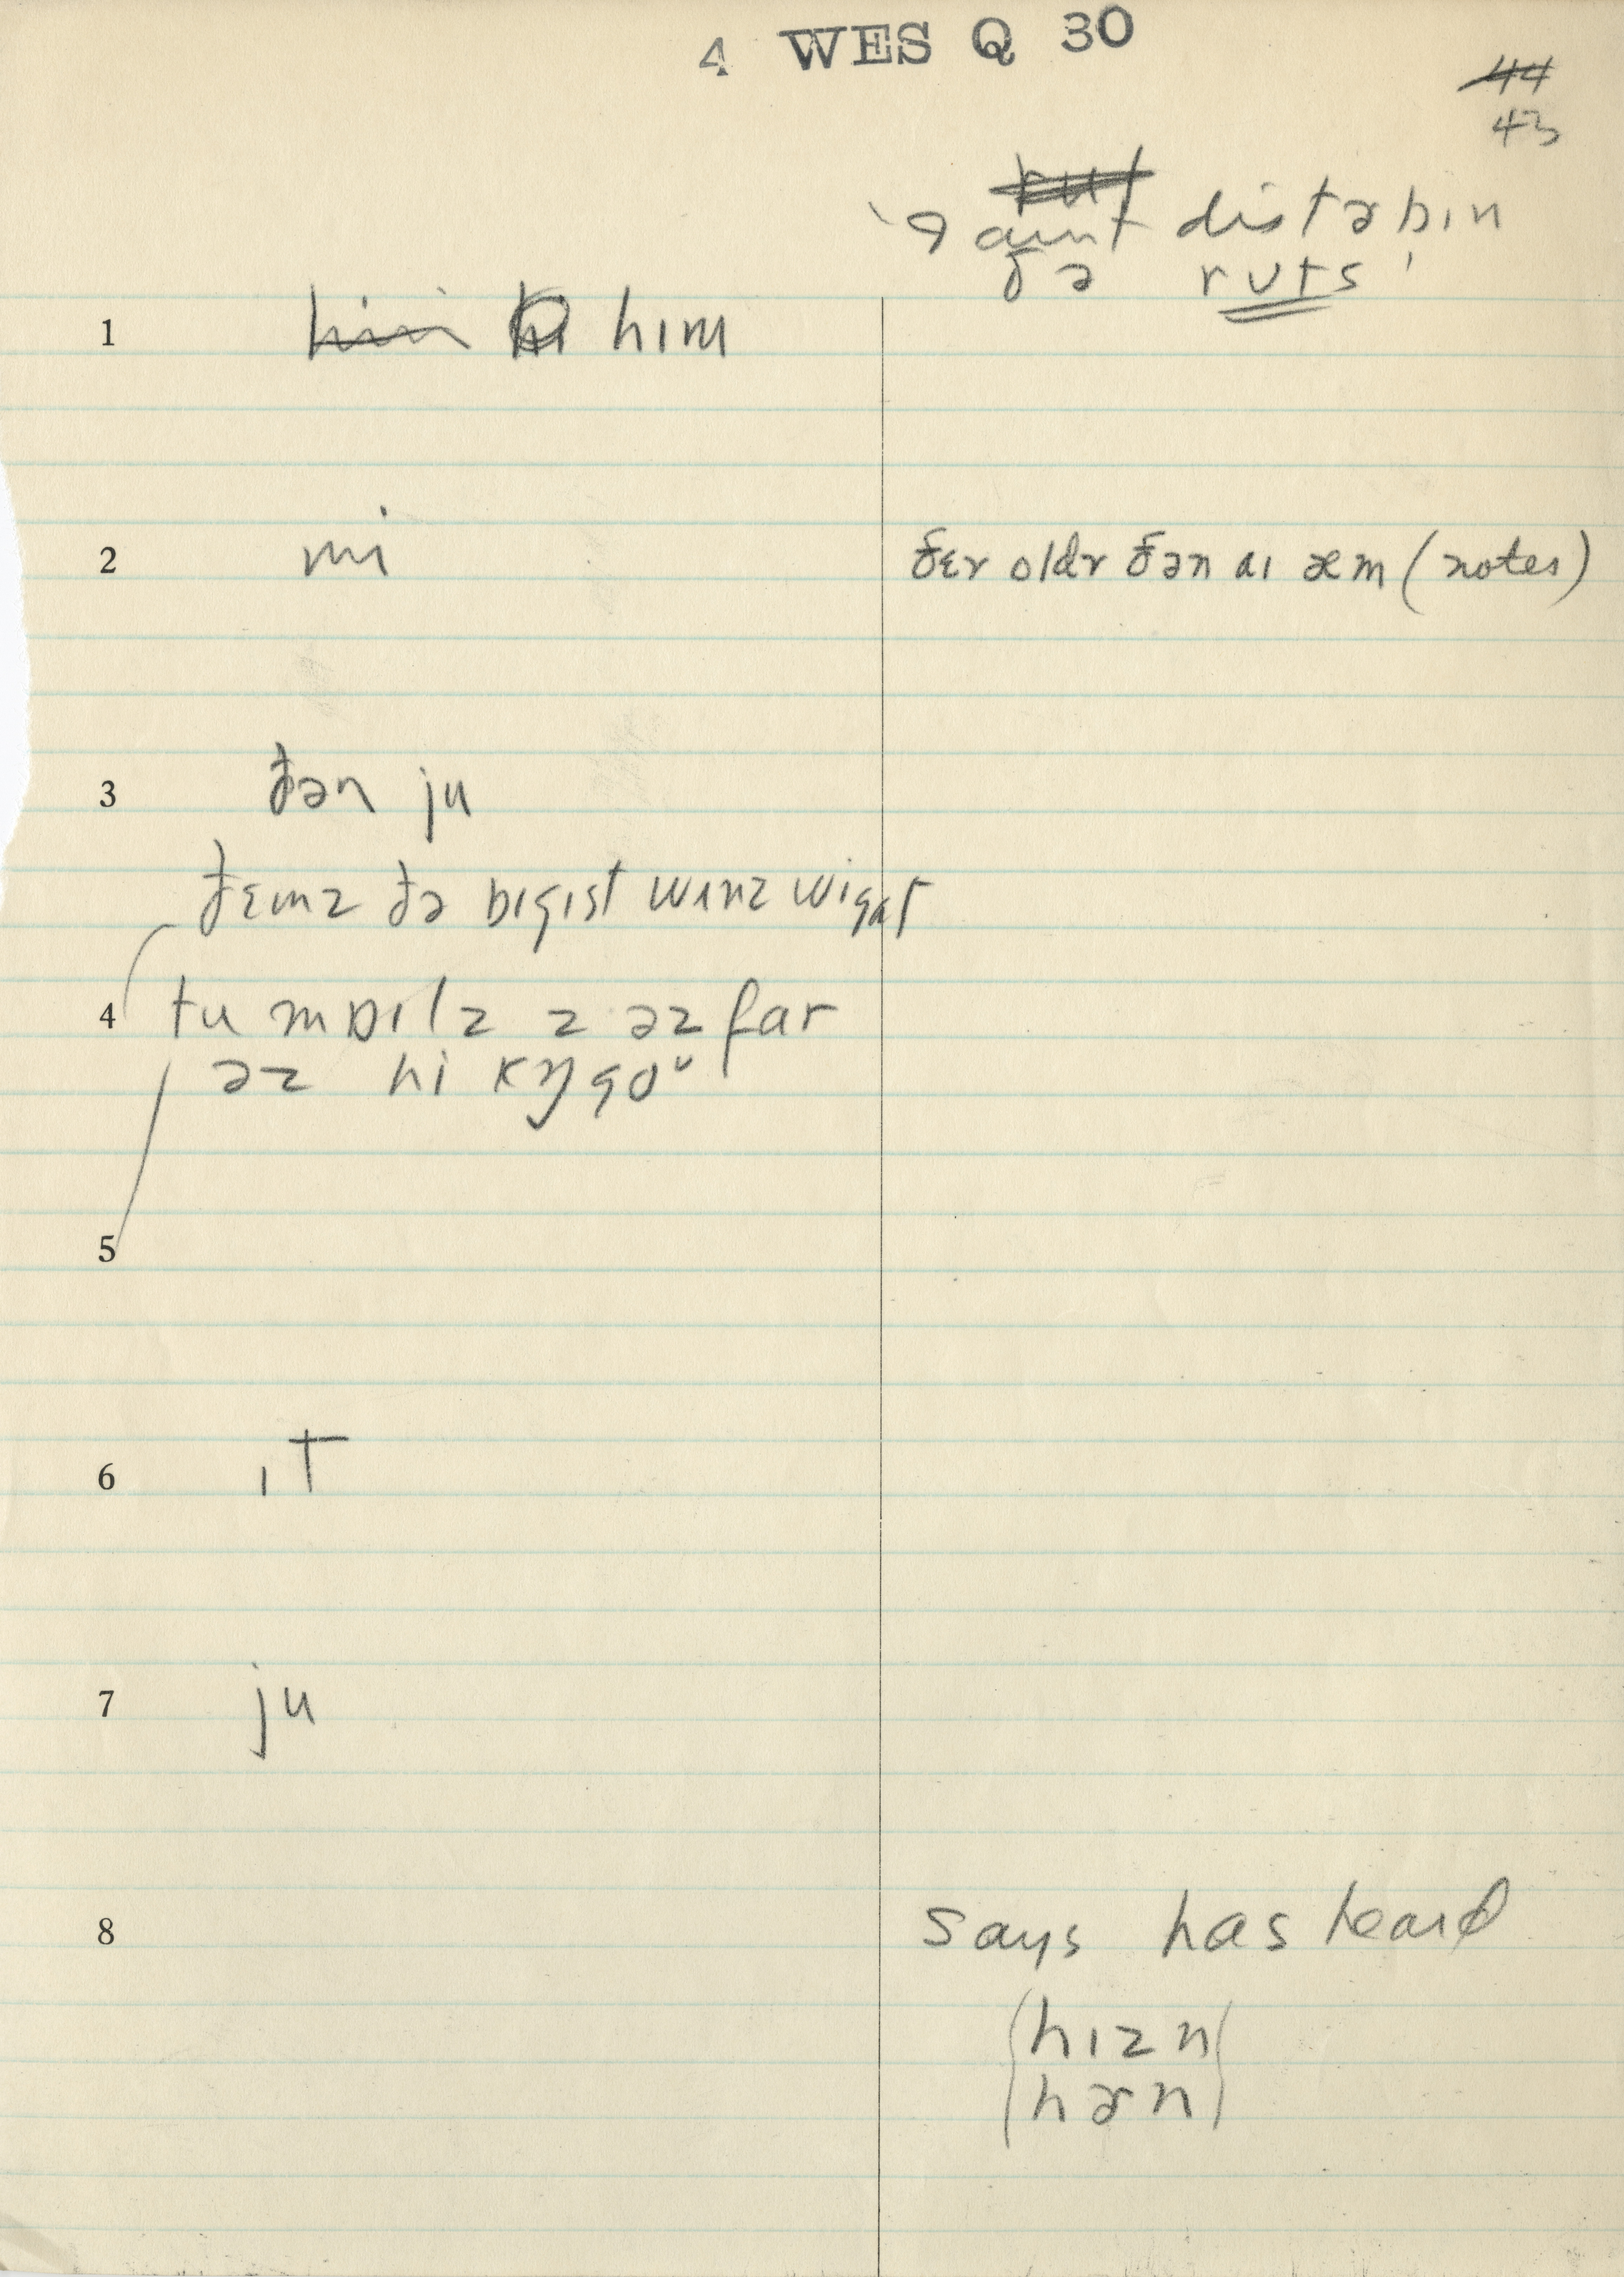 4 WES Q 30
44
43
ɚ aunt distɚbɪn
ðə rʊts
1 him hi hɪm
2 mi
ðɛr oldr ðən aɪ æm (notes)
3 ðən ju
ðɛmz ðə bɪgɪst wʌnz wi gat
4 tu mɒɪlz z əz far
əz hi kŋ goᵘ
5
6 ɪt
7 ju
8 says has heard
hɪzn
hɚn